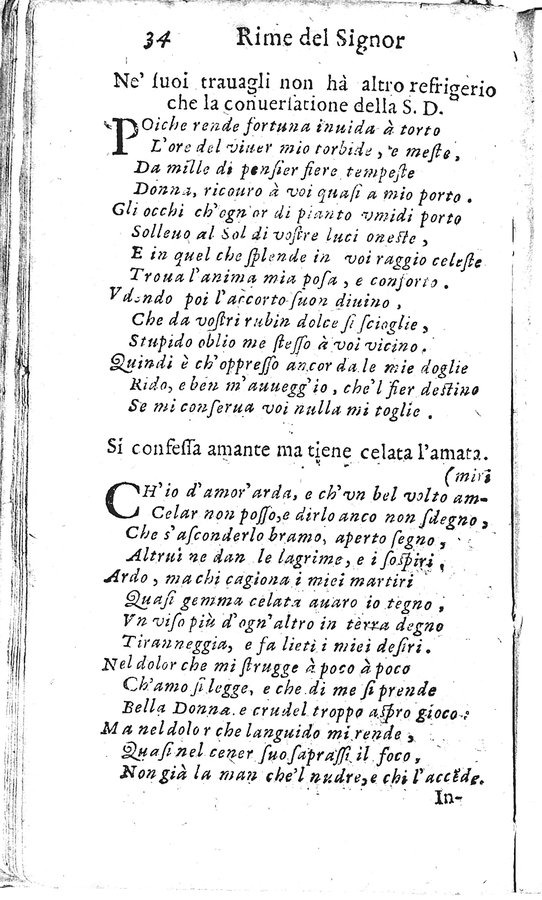 34 Rime del Signor
Ne' ſuoi trauagli non hà altro refrigerio
che la conuerſatione della S. D.
POiche rende fortuna inuida à torto
L'ore del viuer mio torbide, e meſte,
Da mille di penſier fiere tempeſte
Donna, ricouro à voi quaſi a mio porto.
Gli occhi ch'ogn'or di pianto vmidi porto
Solleuo al Sol di voſtre luci oneſte,
E in quel che ſplende in voi raggio celeſte
Troua l'anima mia poſa, e conforto.
Vdendo poi l'accorto ſuon diuino,
Che da voſtri rubin dolce ſi ſcioglie,
Stupido oblio me ſteſſo à voi vicino.
Quindi è ch'oppreſſo ancor da le mie doglie
Rido, e ben m'auuegg'io, che'l fier deſtino
Se mi conſerua voi nulla mi toglie.
Si confeſſa amante ma tiene celata l'amata.
(miri
CH'io d'amor'arda, e ch'vn bel volto am-
Celar non poſſo, e dirlo anco non ſdegno,
Che s'aſconderlo bramo, aperto ſegno,
Altrui ne dan le lagrime, e i ſoſpiri,
Ardo, ma chi cagiona i miei martiri
Quaſi gemma celata auaro io tegno,
Vn viſo più d'ogn'altro in terra degno
Tiranneggia, e fa lieti i miei deſiri.
Nel dolor che mi ſtrugge à poco à poco
Ch'amo ſi legge, e che di me ſi prende
Bella Donna. e crudel troppo aſpro gioco:
Ma nel dolor che languido mi rende,
Quaſi nel cener ſuo ſapraſſi il foco,
Non già la man che'l nudre, e chi l'accēde.
In-